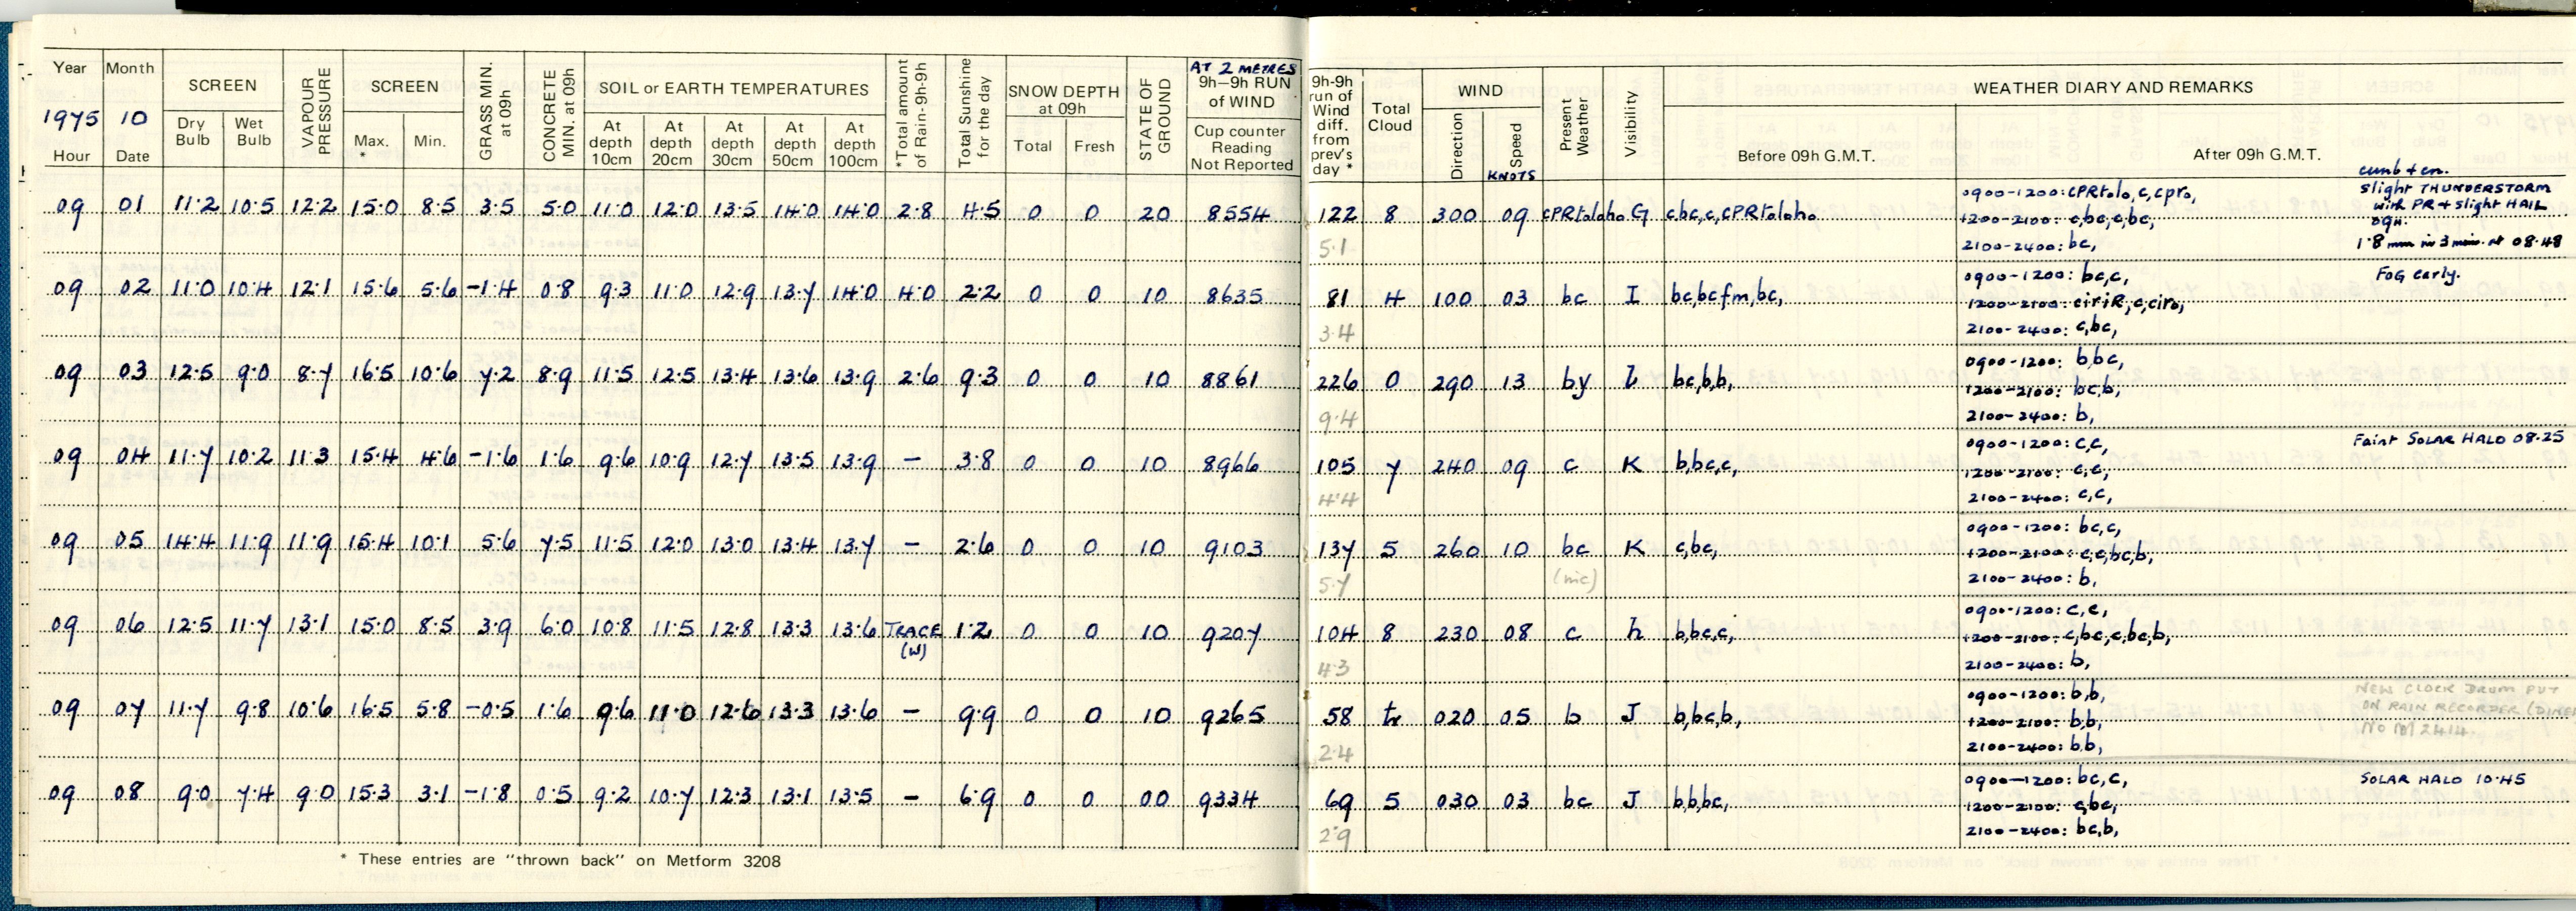 Year Month SCREEN VAPOUR PRESSURE SCREEN GRASS MIN. at 09h CONCRETE MIN. at 09h SOIL or EARTH TEMPERATURES *Total amount of Rain-9h-9h Total Sunshine for the day SNOW DEPTH at 09h STATE OF GROUND AT 2 METRES 9h–9h RUN of WIND
1975 10 Dry Bulb Wet Bulb Max. * Min. At depth 10cm At depth 20cm At depth 30cm At depth 50cm At depth 100cm Total Fresh Cup counter Reading Not Reported
Hour Date
09 01 11.2 10.5 12.2 15.0 8.5 3.5 5.0 11.0 12.0 13.5 14.0 14.0 2.8 4.5 0 0 20 8554
09 02 11.0 10.4 12.1 15.6 5.6 -1.4 0.8 9.3 11.0 12.9 13.7 14.0 4.0 2.2 0 0 10 8635
09 03 12.5 9.0 8.7 16.5 10.6 7.2 8.9 11.5 12.5 13.4 13.6 13.9 2.6 9.3 0 0 10 8861
09 04 11.7 10.2 11.3 15.4 4.6 -1.6 1.6 9.6 10.9 12.7 13.5 13.9 – 3.8 0 0 10 8966
09 05 14.4 11.9 11.9 15.4 10.1 5.6 7.5 11.5 12.0 13.0 13.4 13.7 – 2.6 0 0 10 9103
09 06 12.5 11.7 13.1 15.0 8.5 3.9 6.0 10.8 11.5 12.8 13.3 13.6 TRACE 1.2 0 0 10 9207
(W)
09 07 11.7 9.8 10.6 16.5 5.8 -0.5 1.6 9.6 11.0 12.6 13.3 13.6 – 9.9 0 0 10 9265
09 08 9.0 7.4 9.0 15.3 3.1 -1.8 0.5 9.2 10.7 12.3 13.1 13.5 – 6.9 0 0 00 9334
* These entries are "thrown back" on Metform 3208
9h-9h run of Wind diff. from prev's day * Total Cloud WIND Present Weather Visibility WEATHER DIARY AND REMARKS
Direction Speed KNOTS Before 09h G.M.T. After 09h G.M.T.
cumb + cn.
122 8 300 09 cPRtoloho G c,bc,c,cPRtoloho 0900-1200: cPRtolo,c,cpro, slight THUNDERSTORM
with PR + slight HAIL
1200-2100: c,bc,c,bc, 09H.
5.1 2100-2400: bc, 1.8 mm in 3 mins. at 08.48
0900-1200: bc,c, FOG early.
81 4 100 03 bc I bc,bcfm,bc, 1200-2100: ciriR,c,ciro,
3.4 2100-2400: c,bc,
0900-1200: b,bc,
226 0 290 13 by L bc,b,b, 1200-2100: bc,b,
9.4 2100-2400: b,
0900-1200: c,c, Faint SOLAR HALO 08.25
105 7 240 09 c K b,bc,c, 1200-2100: c,c,
4.4 2100-2400: c,c,
0900-1200: bc,c,
137 5 260 10 bc K c,bc, 1200-2100: c,c,bc,b,
5.7 (mc) 2100-2400: b,
0900-1200: c,c,
104 8 230 08 c h b,bc,c, 1200-2100: c,bc,c,bc,b,
4.3 2100-2400: b,
0900-1200: b,b, NEW CLOCK DRUM PUT
58 tr 020 05 b J b,bc,b, 1200-2100: b,b, ON RAIN RECORDER
2.4 2100-2400: b,b,
0900-1200: bc,c, SOLAR HALO 10.45
69 5 030 03 bc J b,b,bc, 1200-2100: c,bc,
2.9 2100-2400: bc,b,